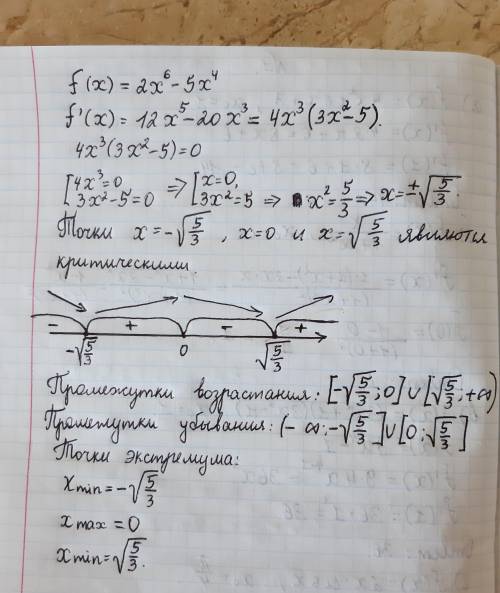 f(x) = 2x⁶ - 5x⁴
f'(x) = 12x⁵ - 20x³ = 4x³(3x² - 5).
4x³(3x² - 5) = 0
[4x³ = 0 => [x = 0,
3x² - 5 = 0 3x² = 5 => x² = 5/3 => x = ±√(5/3).
Точки x = -√(5/3), x = 0 и x = √(5/3) являются
критическими
- + - +
-√(5/3) 0 √(5/3)
Промежутки возрастания: [-√(5/3); 0] ∪ [√(5/3); +∞)
Промежутки убывания: (-∞; -√(5/3)] ∪ [0; √(5/3)]
Точки экстремума:
xmin = -√(5/3)
xmax = 0
xmin = √(5/3).